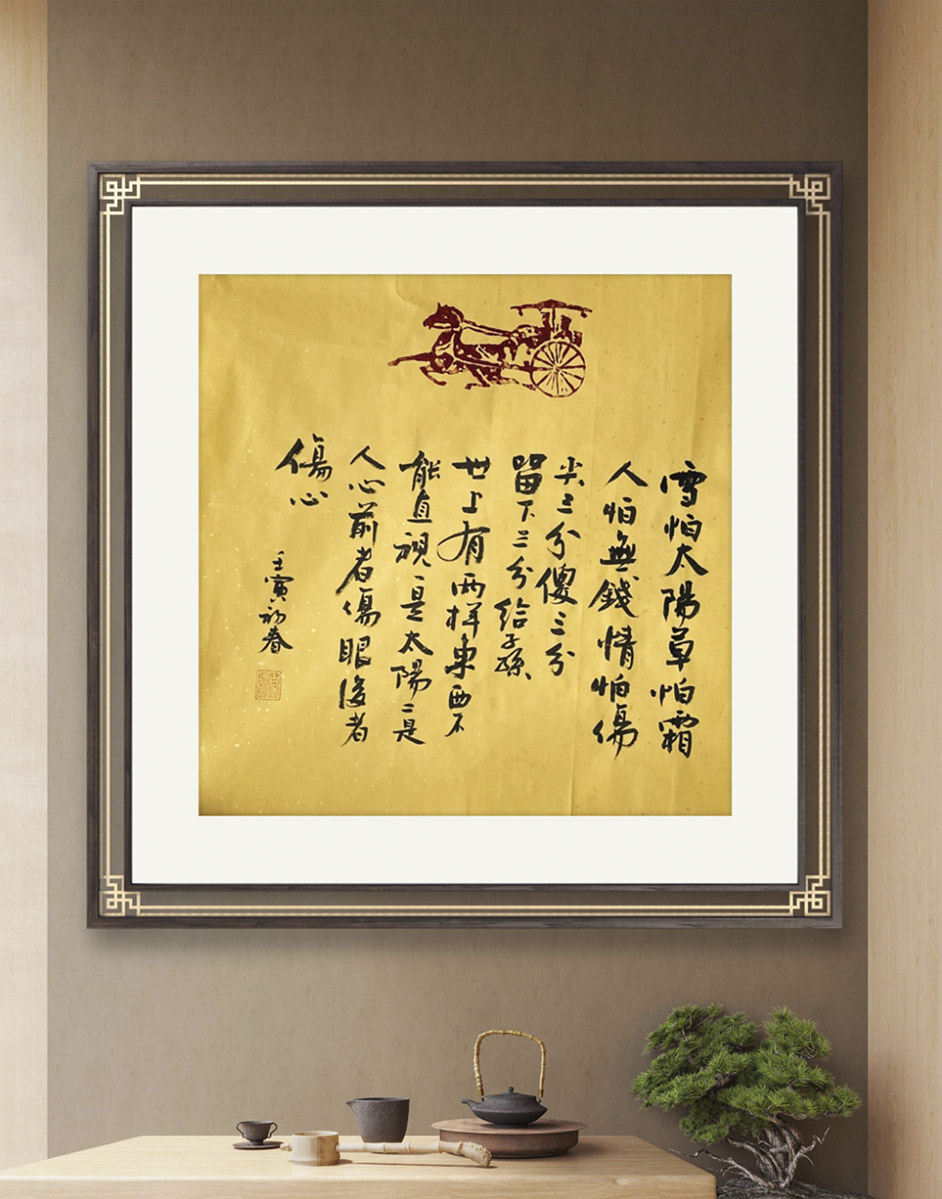 雪怕太陽草怕霜
人怕無錢情怕傷
尖三分傻三分
留下三分給子孫
世上有两样東西不
能直視一是太陽二是
人心前者傷眼後者
傷心
壬寅初春